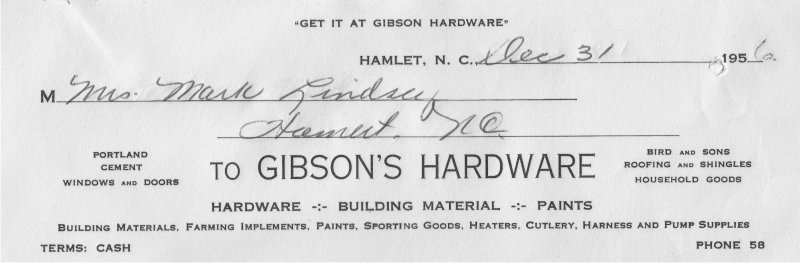 "GET IT AT GIBSON HARDWARE"
HAMLET, N. C. Dec 31 1956
M Mrs. Mark Lindsey
Hamlet, NC.
PORTLAND CEMENT
WINDOWS AND DOORS
TO GIBSON'S HARDWARE
BIRD AND SONS
ROOFING AND SHINGLES
HOUSEHOLD GOODS
HARDWARE -:- BUILDING MATERIAL -:- PAINTS
BUILDING MATERIALS, FARMING IMPLEMENTS, PAINTS, SPORTING GOODS, HEATERS, CUTLERY, HARNESS AND PUMP SUPPLIES
TERMS: CASH PHONE 58